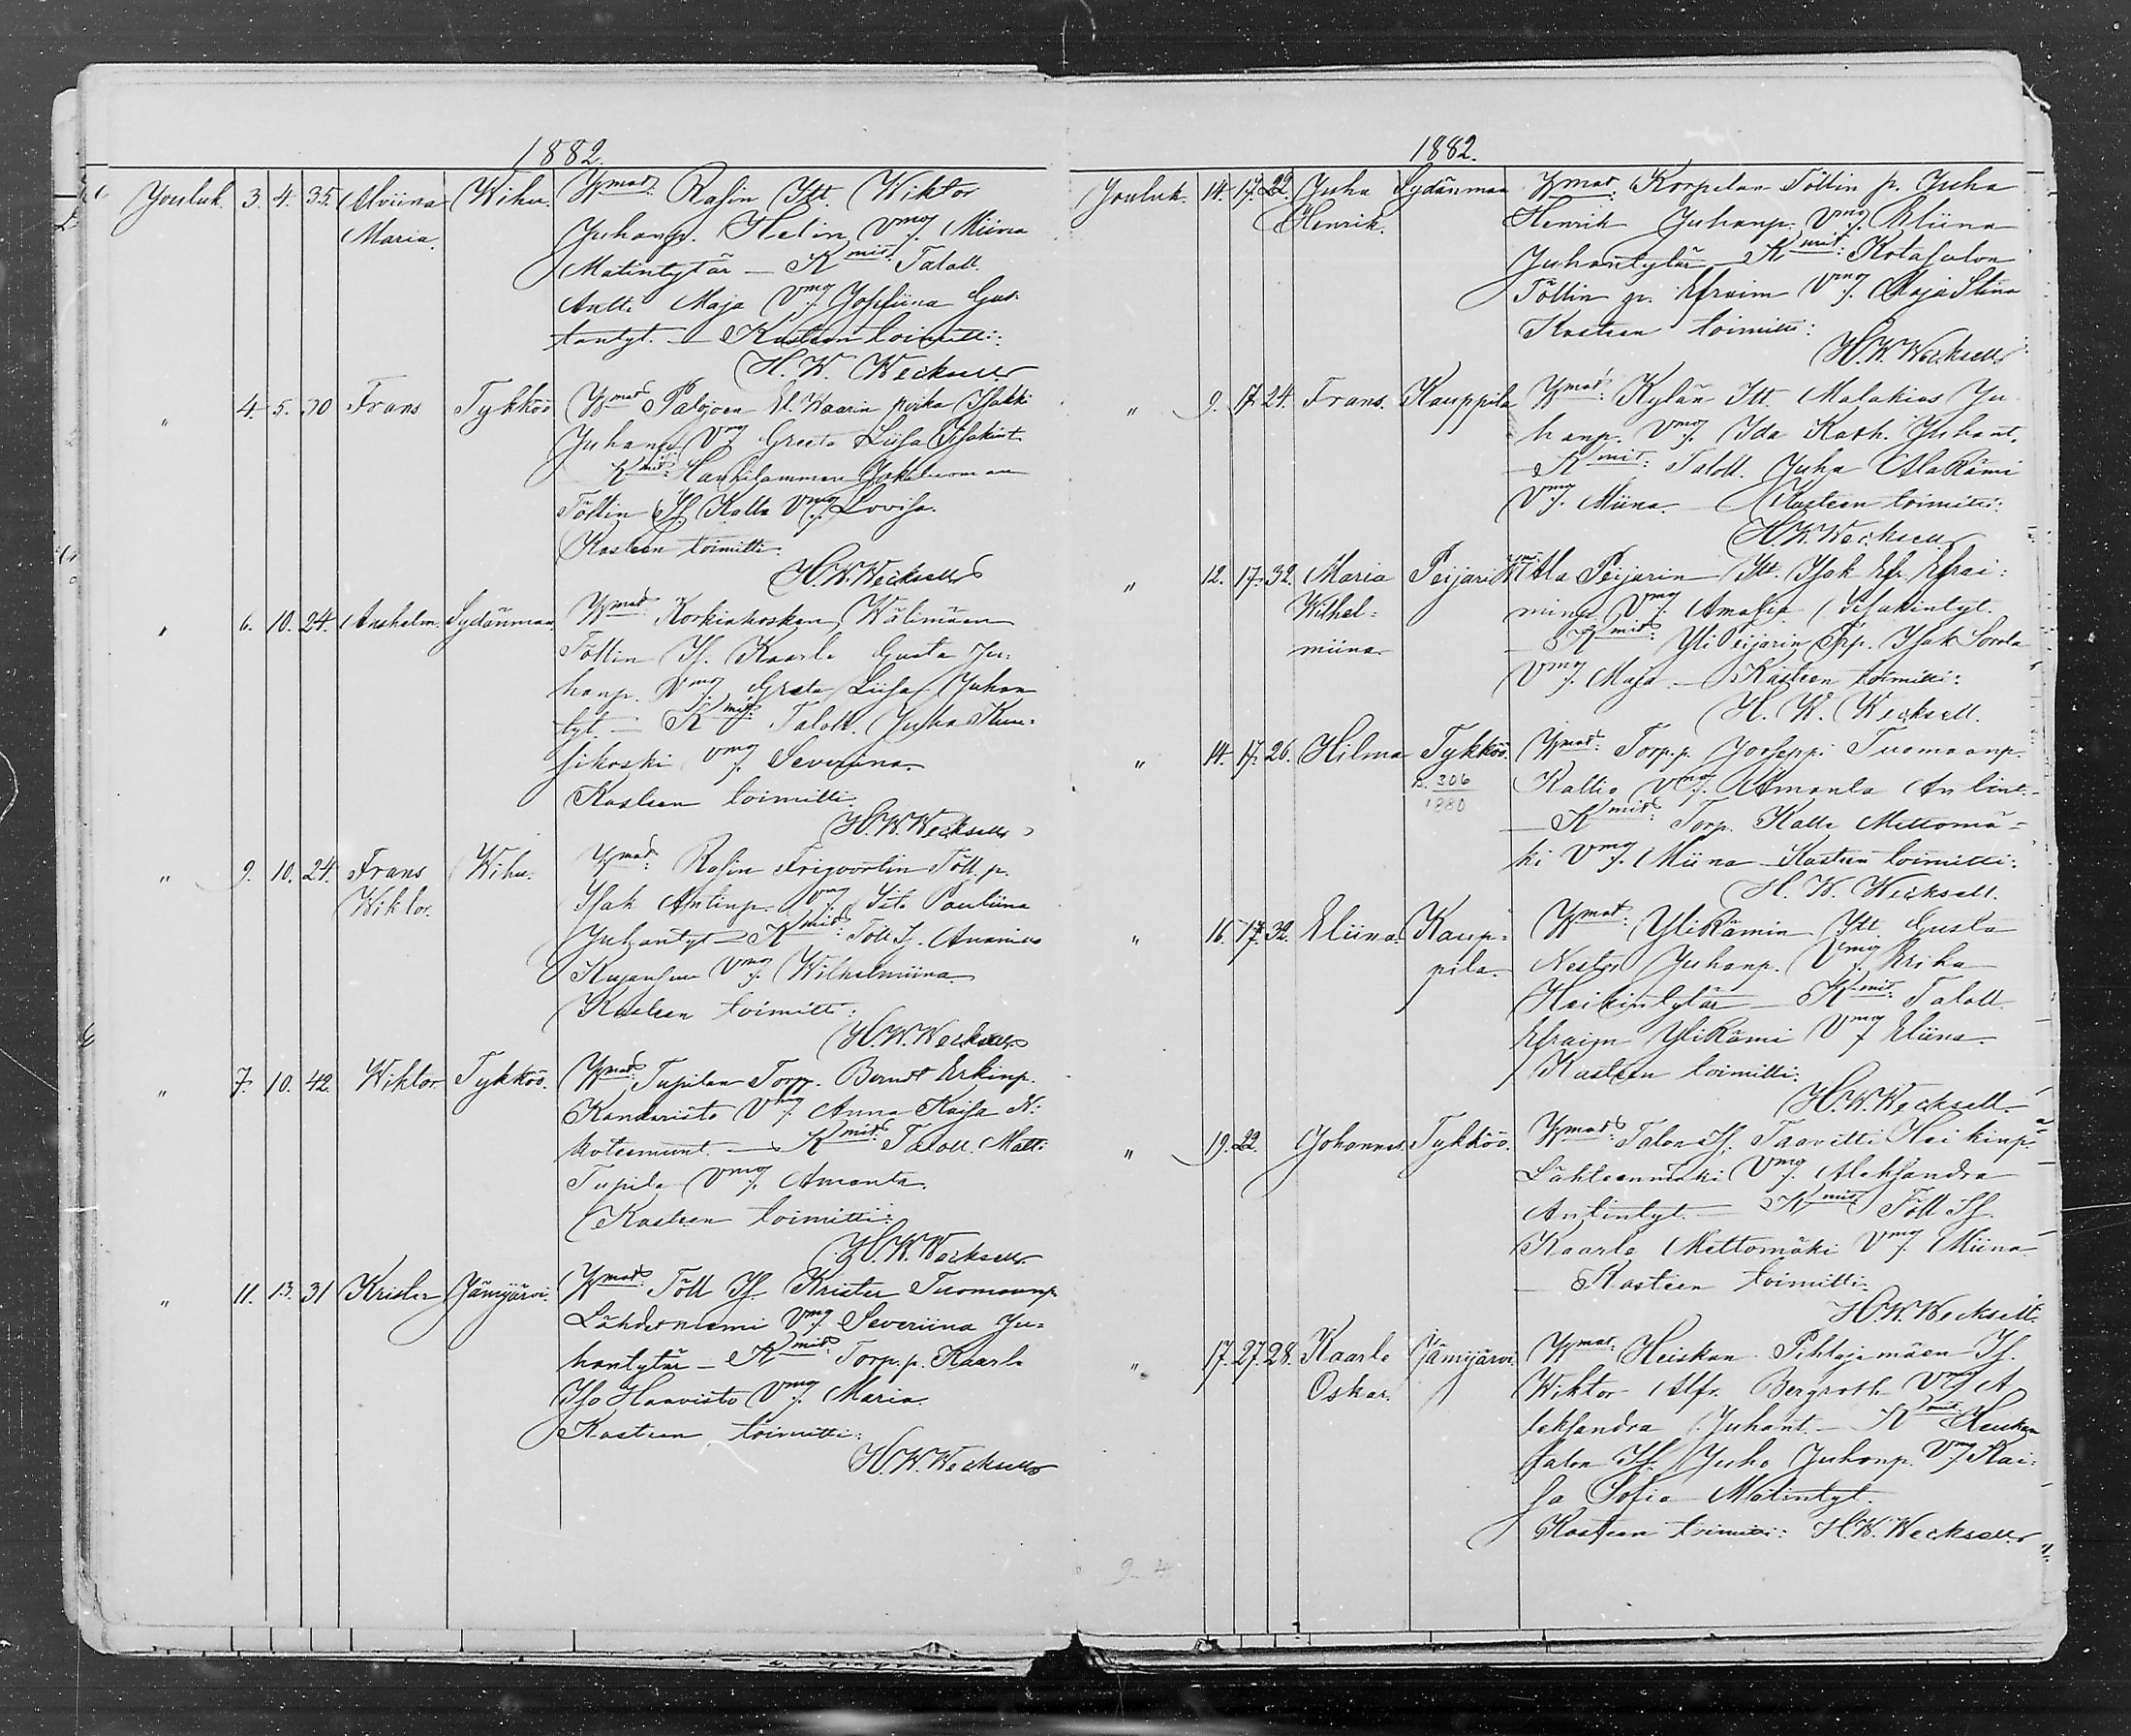 1882.
Jouluk. 3. 4. 35. Alviina Wihu. Wmat: Rasin Itt. Wiktor
Maria. Juhanp. Helin Vmoj. Miina
Matintytär — Kmit: Taloll.
Antti Maja Vmoj. Josefiina Gus-
tantyt. — Kasteen toimitti:
H. W. Wecksell
" 4. 5. 30 Frans Tykköö Wmat Palojoen El. Waarin poika Isakki
Juhanp. Vmoj. Greeta Liisa Isakint.
Kmit:
Töllin Is. Kalle Vmoj. Lovisa.
Kasteen toimitti:
H. W. Wecksell
" 6. 10. 24. Anshelm. Sydänmaa. Wmat Korkiakosken Wälimäen
Töllin Is. Kaarle Gusta Ju-
hanp. Vmoj. Greta Liisa Juhan
tyt. — Kmit: Taloll. Juha Kuu-
sikoski Vmoj. Severiina.
Kasteen toimitti.
H. W. Wecksell
" 9. 10. 24. Frans Wihu. Wmat: Rasin Töll. p.
Wiktor. Isak Antinp. Vmoj. Pauliina
Juhantyt — Kmit: Töll Is. Ananias
Vmoj. Wilhelmiina.
Kasteen toimitti:
H. W. Wecksell
" 7. 10. 42. Wiktor Tykköö. Wmat: Tupilan Torp. Berndt Erkinp.
Kanaristo Vmoj. Anna Kaisa Ni-
koteemunt. — Kmit: Taloll. Matti
Tupila Vmoj. Amanta.
Kasteen toimitti:
H. W. Wecksell
" 11. 13. 31 Krister Jämijärvi. Wmat: Töll Is. Krister Tuomaanp.
Lähdesniemi Vmoj. Severiina Ju-
hantytär — Kmit: Torp. p. Kaarle
Iso Haavisto Vmoj. Maria.
Kasteen toimitti:
H. W. Wecksell
1882.
Jouluk. 14. 17. 22. Juha Sydänmaa Wmat: Korpelan Töllin p. Juha
Henrik. Henrik Juhanp. Vmoj. Eliina
Juhantytär — Kmit: Kotasalon
Töllin p. Efraim Vmoj. Maja Stina
Kasteen toimitti:
H. W. Wecksell
" 9. 17. 24. Frans. Kauppila Wmat: Kylän Itt. Malakias Ju-
hanp. Vmoj. Ida Kath. Juhant.
— Kmit: Taloll. Juha AlaRämi
Vmoj. Miina. — Kasteen toimitti:
H. W. Wecksell
" 12. 17. 32. Maria Peijari Wmat Ala Peijarin Itt. Isak Efr. Efrai-
Wilhel- minp. Vmoj. Amalia Isakintyt.
miina. — Kmit: Yli Peijarin Isak
Vmoj. Maja. — Kasteen toimitti:
H. W. Wecksell.
" 14. 17. 26. Hilma Tykköö. Wmat: Torp. p. Jooseppi Tuomaanp.
B. 306 Kallio Vmoj. Amanta Antint.
1880 — Kmit: Torp. Kalle Mettomä-
ki Vmoj. Miina — Kasteen toimitti:
H. W. Wecksell.
" 16. 17. 32. Eliina Kaup- Wmat: YliRämin Itt. Gusta
pila. Nestor Juhanp. Vmoj. Erika
Heikintytär — Kmit: Taloll.
Efraim YliRämi Vmoj. Eliina.
Kasteen toimitti:
H. W. Wecksell.
" 19. 22. Johannes. Tykköö. Wmat: Talon Is. Taavitti Heikinp.
Lähteenmäki Vmoj. Aleksandra
Antintyt. — Kmit Töll Is.
Kaarle Mettomäki Vmoj. Miina
— Kasteen toimitti:
H. W. Wecksell.
" 17. 27. 28. Kaarle Jämijärvi Wmat: Heiskan Pihlajamäen Is.
Oskar. Wiktor Alfr. Bergroth Vmoj. A-
leksandra Juhant. — Kmit Heiskan
talon Is. Juho Juhanp. Vmoj. Kai-
sa Sofia Matintyt.
Kasteen toimitti: H. W. Wecksell